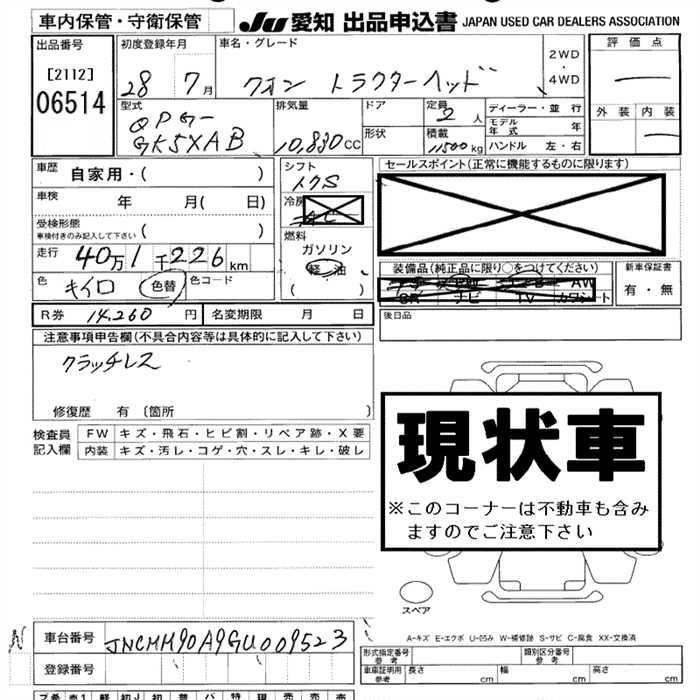 車内保管・守衛保管 JU 愛知 出品申込書 JAPAN USED CAR DEALERS ASSOCIATION
出品番号
[2112]
06514
初度登録年月
28 7月
車名・グレード
クオン トラクターヘッド
2WD
・
4WD
評価点
外装 内装
型式
QPG-
GK5XAB
排気量
10,830CC
ドア
形状
定員
2人
積載
11500kg
ディーラー・並行
モデル年式 年
ハンドル 左・右
車歴 自家用・( )
車検 年 月( 日)
受検形態
車検付きのみ記入して下さい ( )
走行 40万1千226km
色 キイロ 色替 色コード
シフト
冷房
AC
燃料
ガソリン
軽・油
( )
セールスポイント(正常に機能するものに限ります)
装備品(純正品に限り○をつけてください)
AW
SR ナビ TV カワシート
新車保証書
有・無
R券 14,260円 名変期限 月 日
後日品
注意事項申告欄(不具合内容等は具体的に記入して下さい)
クラッチレス
修復歴 有 〔箇所 〕
検査員記入欄
FW キズ・飛石・ヒビ割・リペア跡・X要
内装 キズ・汚レ・コゲ・穴・スレ・キレ・破レ
現状車
※このコーナーは不動車も含み
ますのでご注意下さい
スペア
N 車台番号 JNCMM90A9GU009523
登録番号
A-キズ E-エクボ U-凹み W-補修跡 S-サビ C-腐食 XX-交換済
型式指定番号 参考 類別区分番号 参考
車庫証明用 参考 長さ cm 幅 cm 高さ cm